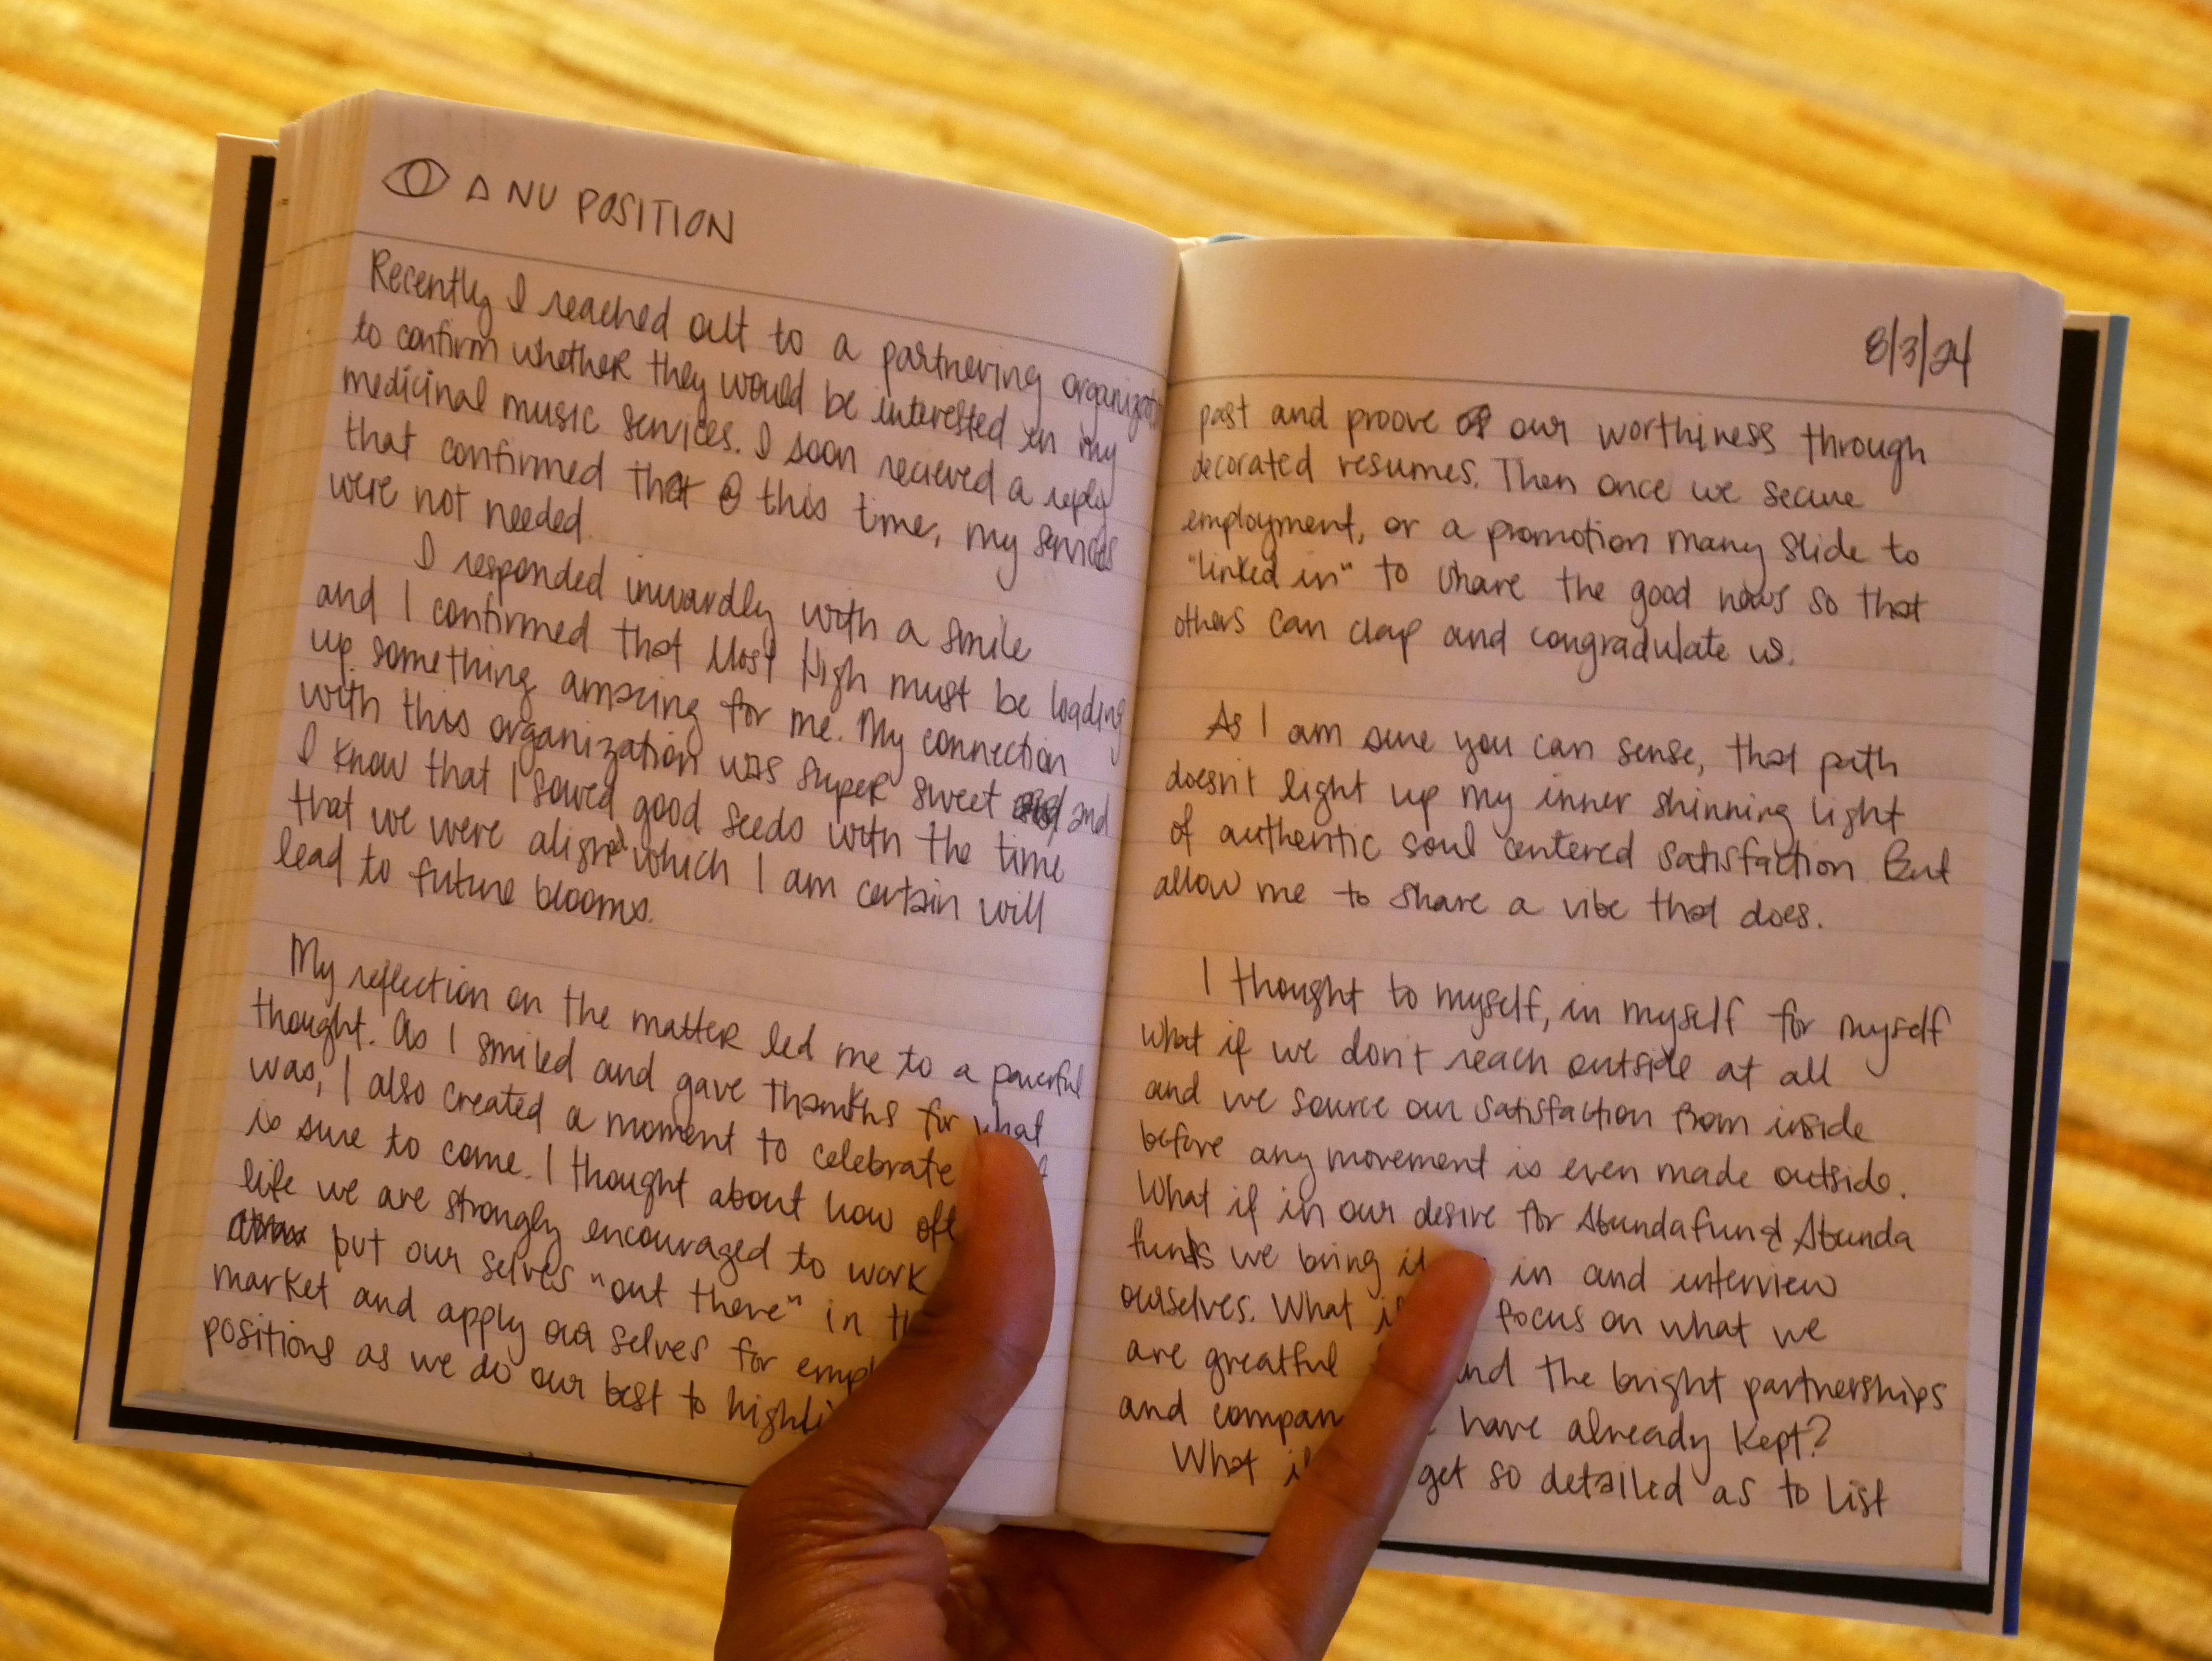 Δ NU POSITION
Recently I reached out to a partnering
to confirm whether they would be interested in my
medicinal music services. I soon recieved a reply
that confirmed that @ this time, my services
were not needed.
I responded inwardly with a smile
and I confirmed that Most High must be loading
up something amazing for me. My connection
with this organization was super sweet and
I know that I sowed good seeds with the time
that we were aligned which I am certain will
lead to future blooms.
My reflection on the matter led me to a powerful
thought. As I smiled and gave thanks for what
was, I also created a moment to celebrate
is sure to come. I thought about how
life we are strongly encouraged to work
put our selves "out there" in
market and apply our selves for
positions as we do our best to
8/3/24
past and proove our worthiness through
decorated resumes. Then once we secure
employment, or a promotion many slide to
"linked in" to share the good news so that
others can clap and congradulate us.
As I am sure you can sense, that path
doesn't light up my inner shinning light
of authentic soul centered satisfaction. But
allow me to share a vibe that does.
I thought to myself, in myself for myself
what if we don't reach outside at all
and we source our satisfaction from inside
before any movement is even made outside.
What if in our desire for Abundafun & Abunda
funds we bring it in and interview
ourselves. What focus on what we
are greatful and the bright partnerships
and have already kept?
What get so detailed as to list